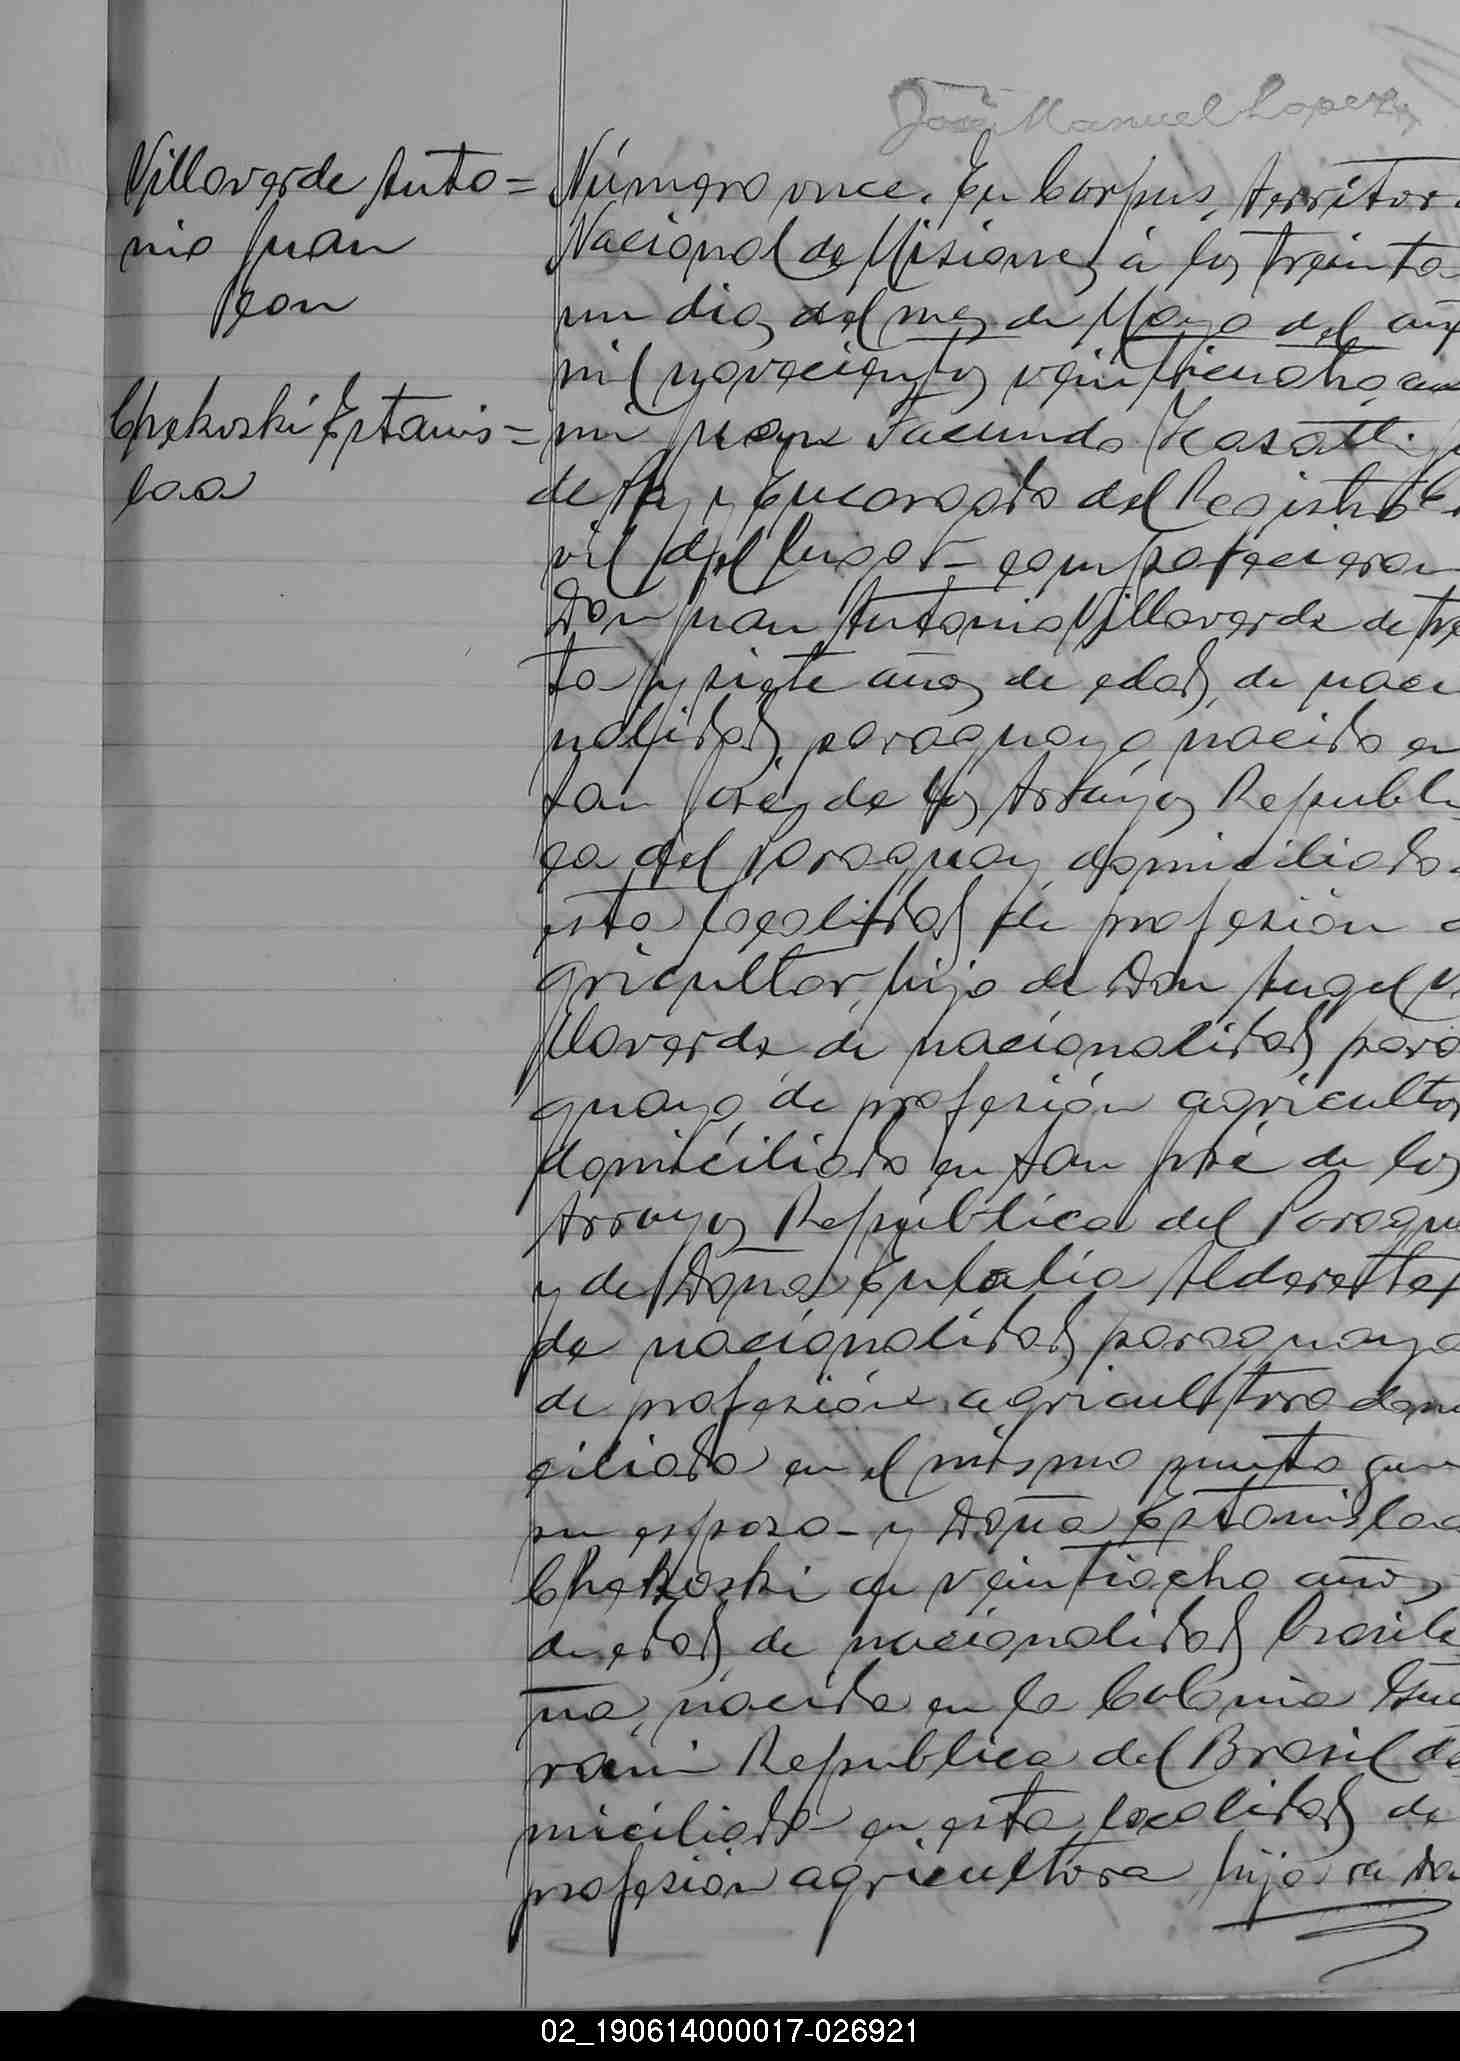 José Manuel Lopez
Villaverde Anto=
nio Juan
con
Chekoski Estanis=
laa
Número once. En Corpus, territor
Nacional de Misiones á los treinta
un dias del mes de Mayo del año
mil novecientos veintiocho, an
mi Facundo
de Paz y Encargado del Registro C
vil del lugar - comparecieron
Don Juan Antonio Villaverde de tre
ta y siete años de edad, de nacio
nalidad paraguaya, nacido en
San José de los Arroyos Republi
ca del Paraguay domiciliado
esta localidad de profesión a
gricultor, hijo de Don Angel Vi
llaverde de nacionalidad para
guaya, de profesión agricultor
domiciliado en San José de los
Arroyos República del Paragua
y de Doña Eulalia Alderette
de nacionalidad paraguaya
de profesión agricultora domi
ciliada en el mismo punto que
su esposo - y Doña Estanislaa
Chekoski de veintiocho años
de edad de nacionalidad brasile
ña, nacida en la Colonia Gua
rani Republica del Brasil do
miciliada en esta localidad de
profesión agricultora hija de Don
02_190614000017-026921